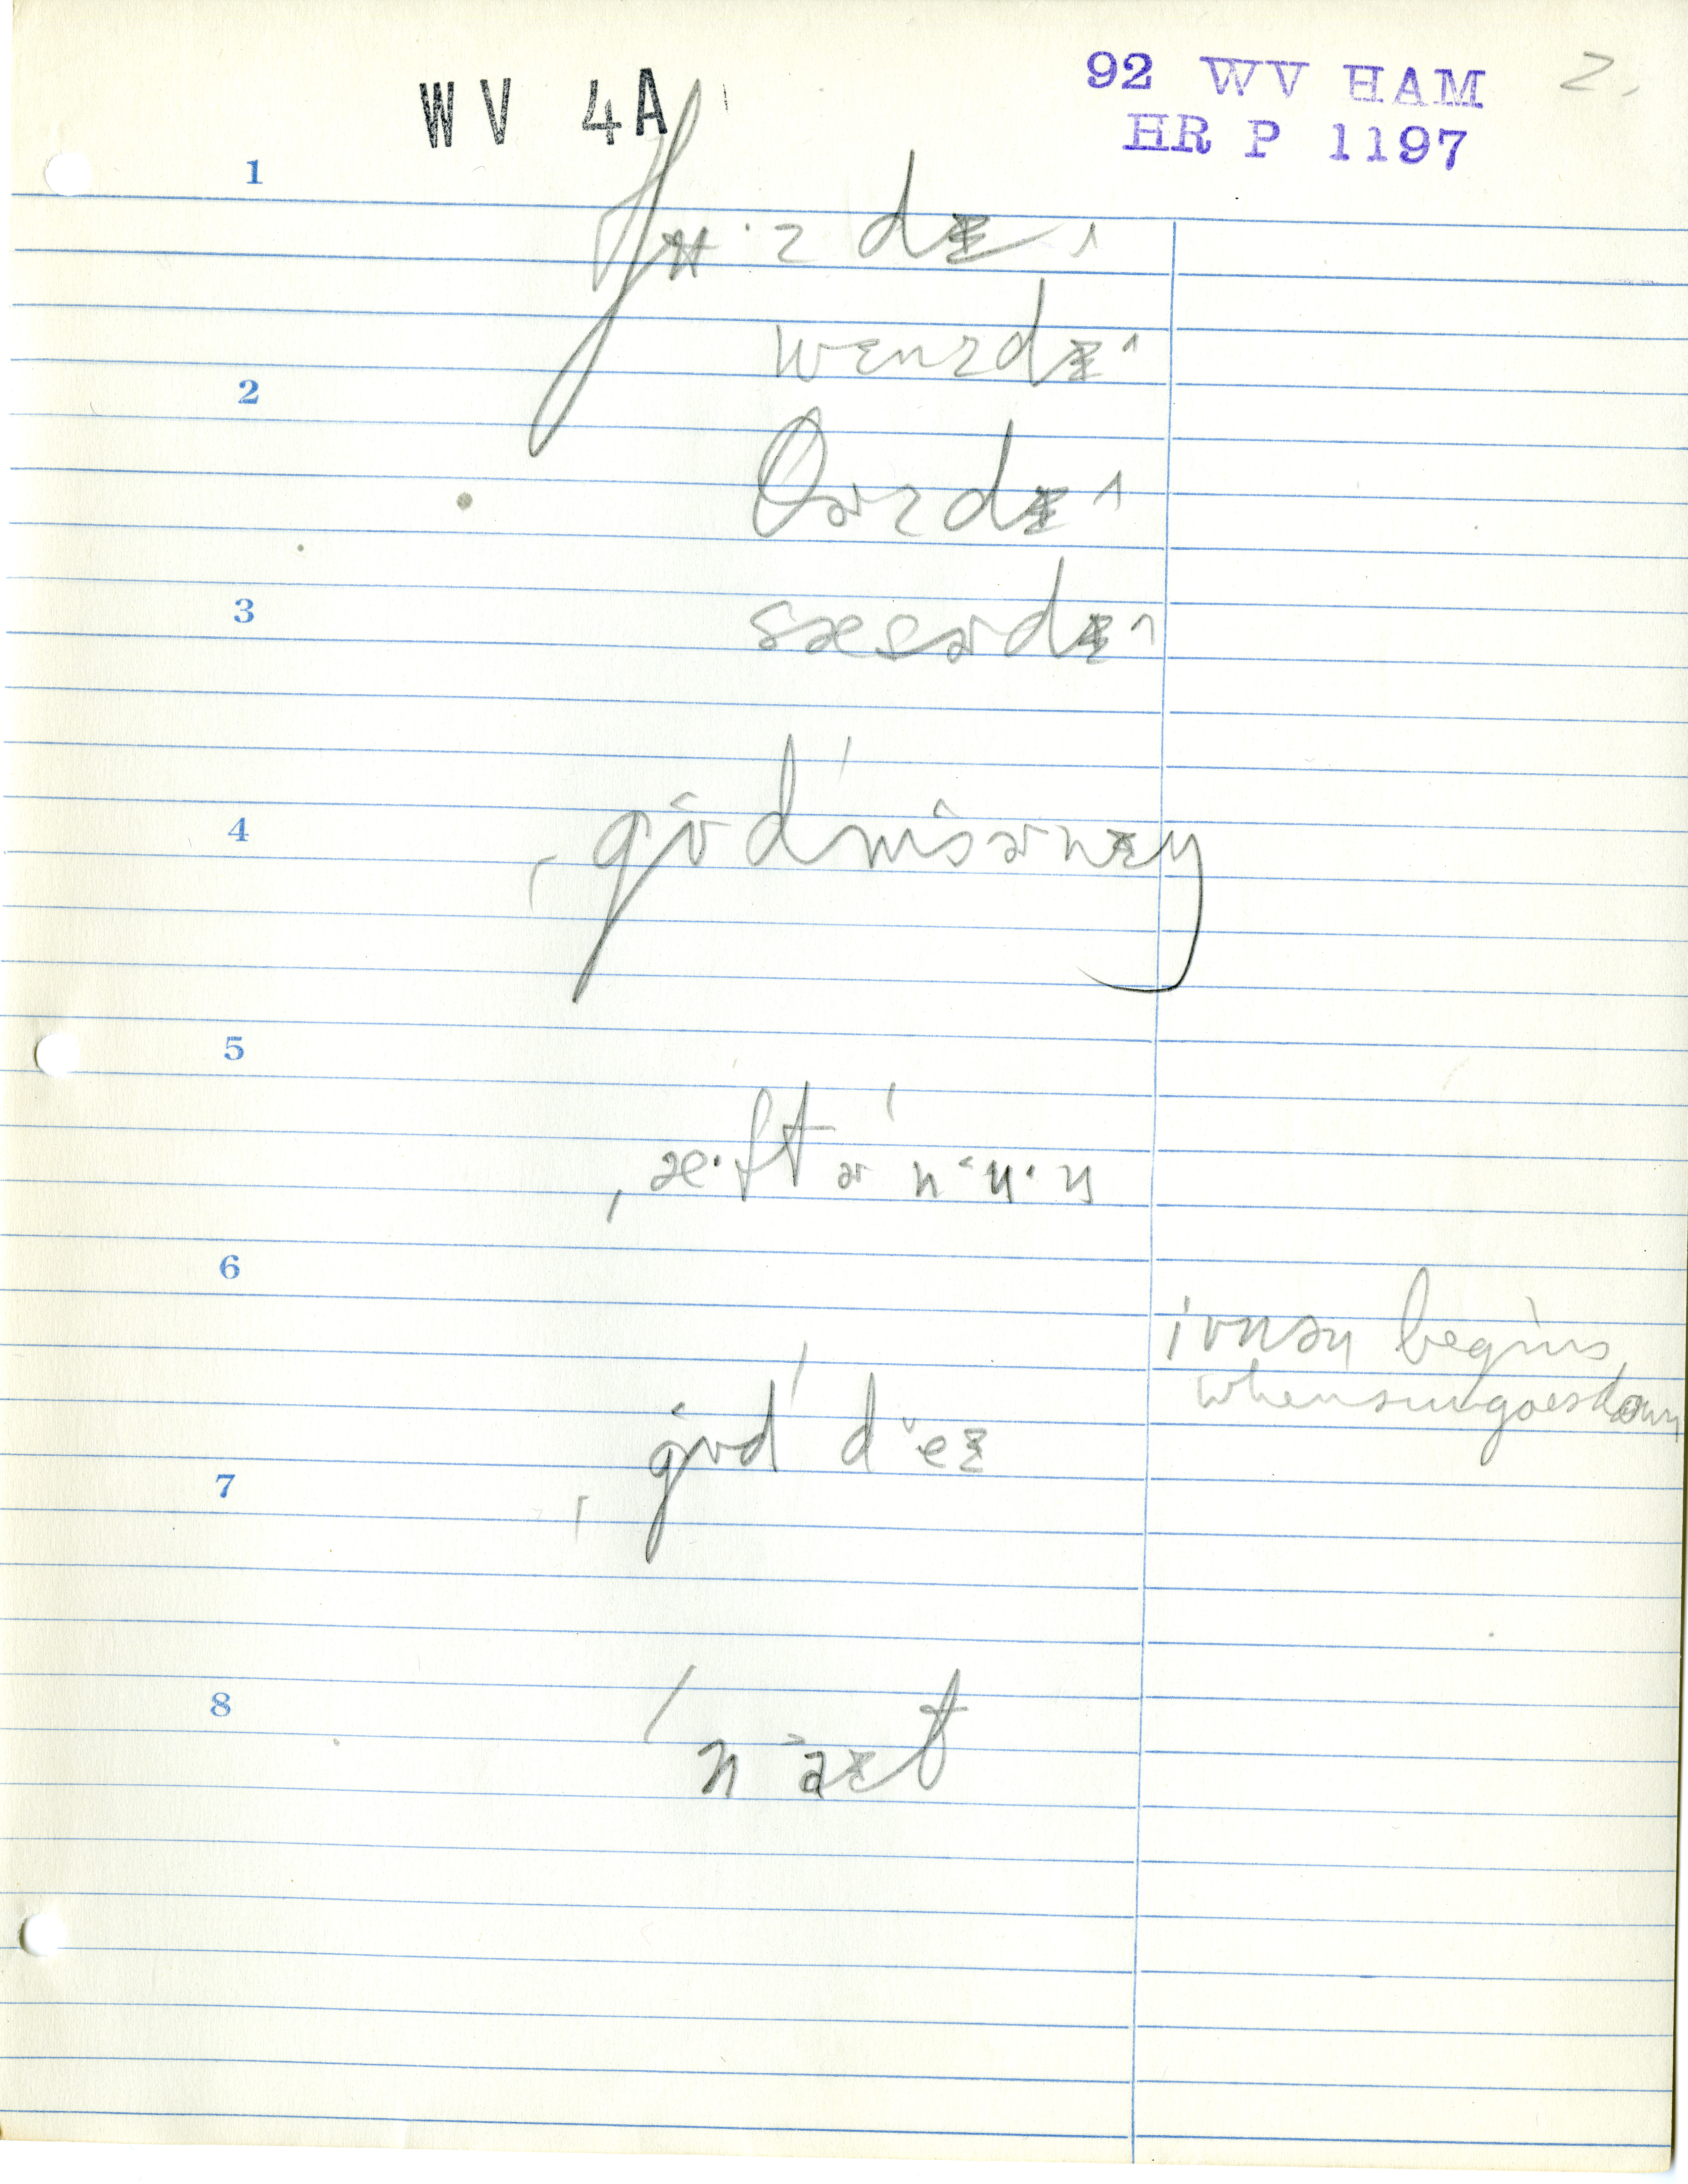 WV 4A
92 WV HAM 2.
HR P 1197
1
tʉ·zdɪ^
2
wɛnzdɪ^
θɚzdɪ^
3
sæɚdɪ^
4
ˌgʊd'mɔɚnɪŋ
5
ˌæ·ftɚ'nʉ·n
6
ivnən begins
when sun goes down
ˌgʊd'deɪ
7
8
'naɪt